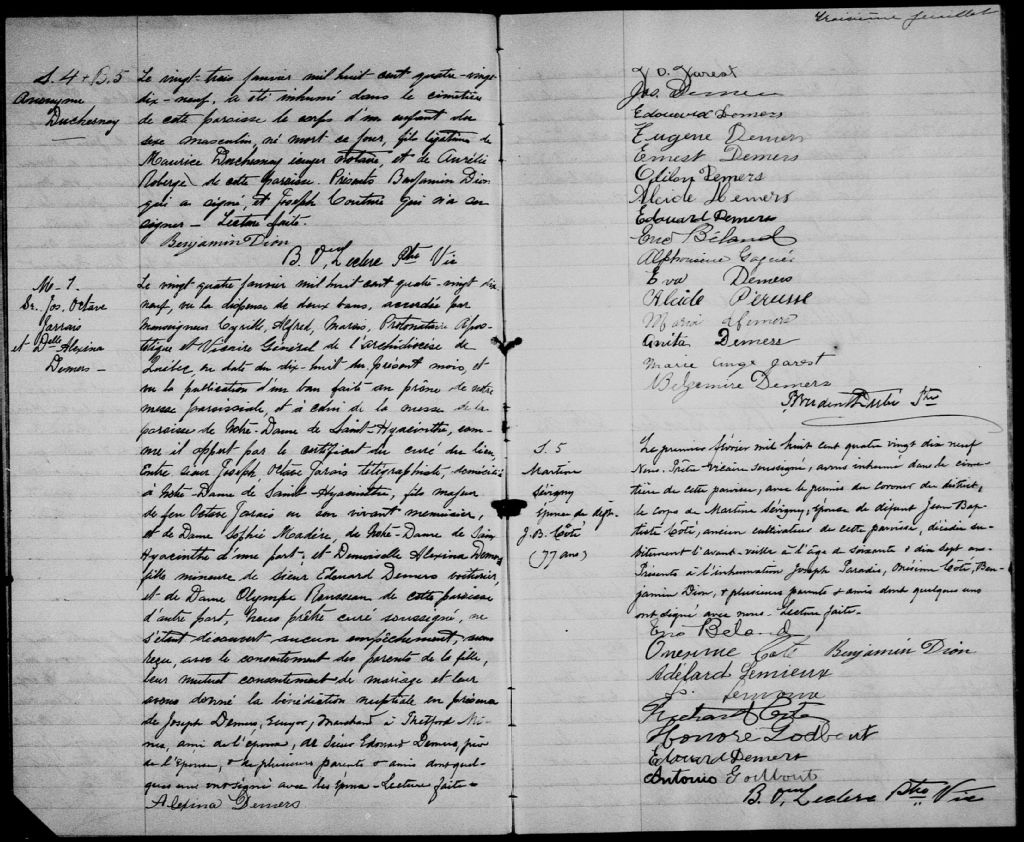 S. 4 + B. 5
Anonyme
Duchesnay
Le vingt-trois Janvier mil huit cent quatre-vingt
dix-neuf, a été inhumé dans le cimetière
de cette paroisse le corps d'un enfant du
sexe masculin, né mort ce jour, fils légitime de
Maurice Duchesnay écuyer notaire, et de Aurélie
Roberge de cette paroisse. Présents Benjamin Dion
qui a signé, et Joseph Couture qui n'a su
signer — Lecture faite.
Benjamin Dion
B. O. Leclerc Ptre Vic
M-1.
Sr. Jos. Octave
Jarrais
et Delle Alexina
Demers —
Le vingt quatre janvier mil huit cent quatre-vingt dix
neuf, vu la dispense de deux bans, accordée par
Monseigneur Cyrille, Alfred, Marois, Protonotaire Apos-
tolique et Vicaire Général de l'archidiocèse de
Québec, en date du dix-huit du présent mois, et
vu la publication d'un ban faite au prône de notre
messe paroissiale, et à celui de la messe de la
paroisse de Notre-Dame de Saint-Hyacinthe, com-
me il appert par le certificat du curé du lieu,
Entre sieur Joseph, Octave Jarais télégraphiste, domicilié
à Notre-Dame de Saint-Hyacinthe, fils majeur
de feu Octave Jarais en son vivant menuisier,
et de Dame Sophie Madère, de Notre-Dame de Saint
Hyacinthe d'une part, et Demoiselle Alexina Demers
fille mineure de sieur Edouard Demers voiturier,
et de Dame Olympe Rousseau de cette paroisse
d'autre part, Nous prêtre curé soussigné, ne
s'étant découvert aucun empêchement, avons
reçu, avec le consentement des parents de la fille,
leur mutuel consentement de mariage et leur
avons donné la bénédiction nuptiale en présence
de Joseph Demers, Ecuyer, Marchand à Thetford Mi-
nes, ami de l'époux, de Sieur Edouard Demers, père
de l'épouse, & de plusieurs parents & amis dont quel-
ques uns ont signé avec les époux - Lecture faite -
Alexina Demers
troisième feuillet
J. O. Jarest
Jos. Demers
Edouard Demers
Eugene Demers
Ernest Demers
Odilon Demers
Alcide Demers
Edouard Demers
Eno Béland
Alphonsine Gagné
Eva Demers
Alcide Perusse
Maria Demers
Anita Demers
Marie Ange Jarest
Belzemire Demers
Ptre
S. 5
Martine
Sévigny
épouse de déft.
J. B. Côté
(77 ans)
Le premier février mil huit cent quatre vingt dix neuf
Nous Prêtre Vicaire soussigné, avons inhumé dans le cime-
tière de cette paroisse, avec le permis du coroner du district,
le corps de Martine Sévigny, épouse de défunt Jean Bap
tiste Côté, ancien cultivateur de cette paroisse, décédée su-
bitement l'avant-veille à l'âge de soixante & dix sept ans.
Présents à l'inhumation Joseph Paradis, Onésime Côté, Ben-
jamin Dion, & plusieurs parents & amis dont quelques uns
ont signé avec nous. Lecture faite.
Eno Béland
Onesime Coté Benjamin Dion
Adélard Lemieux
J. Lemoine
Richard Coté
Honoré Godbout
Edouard Demers
Antonio Godbout
B. O. Leclerc Ptre Vic